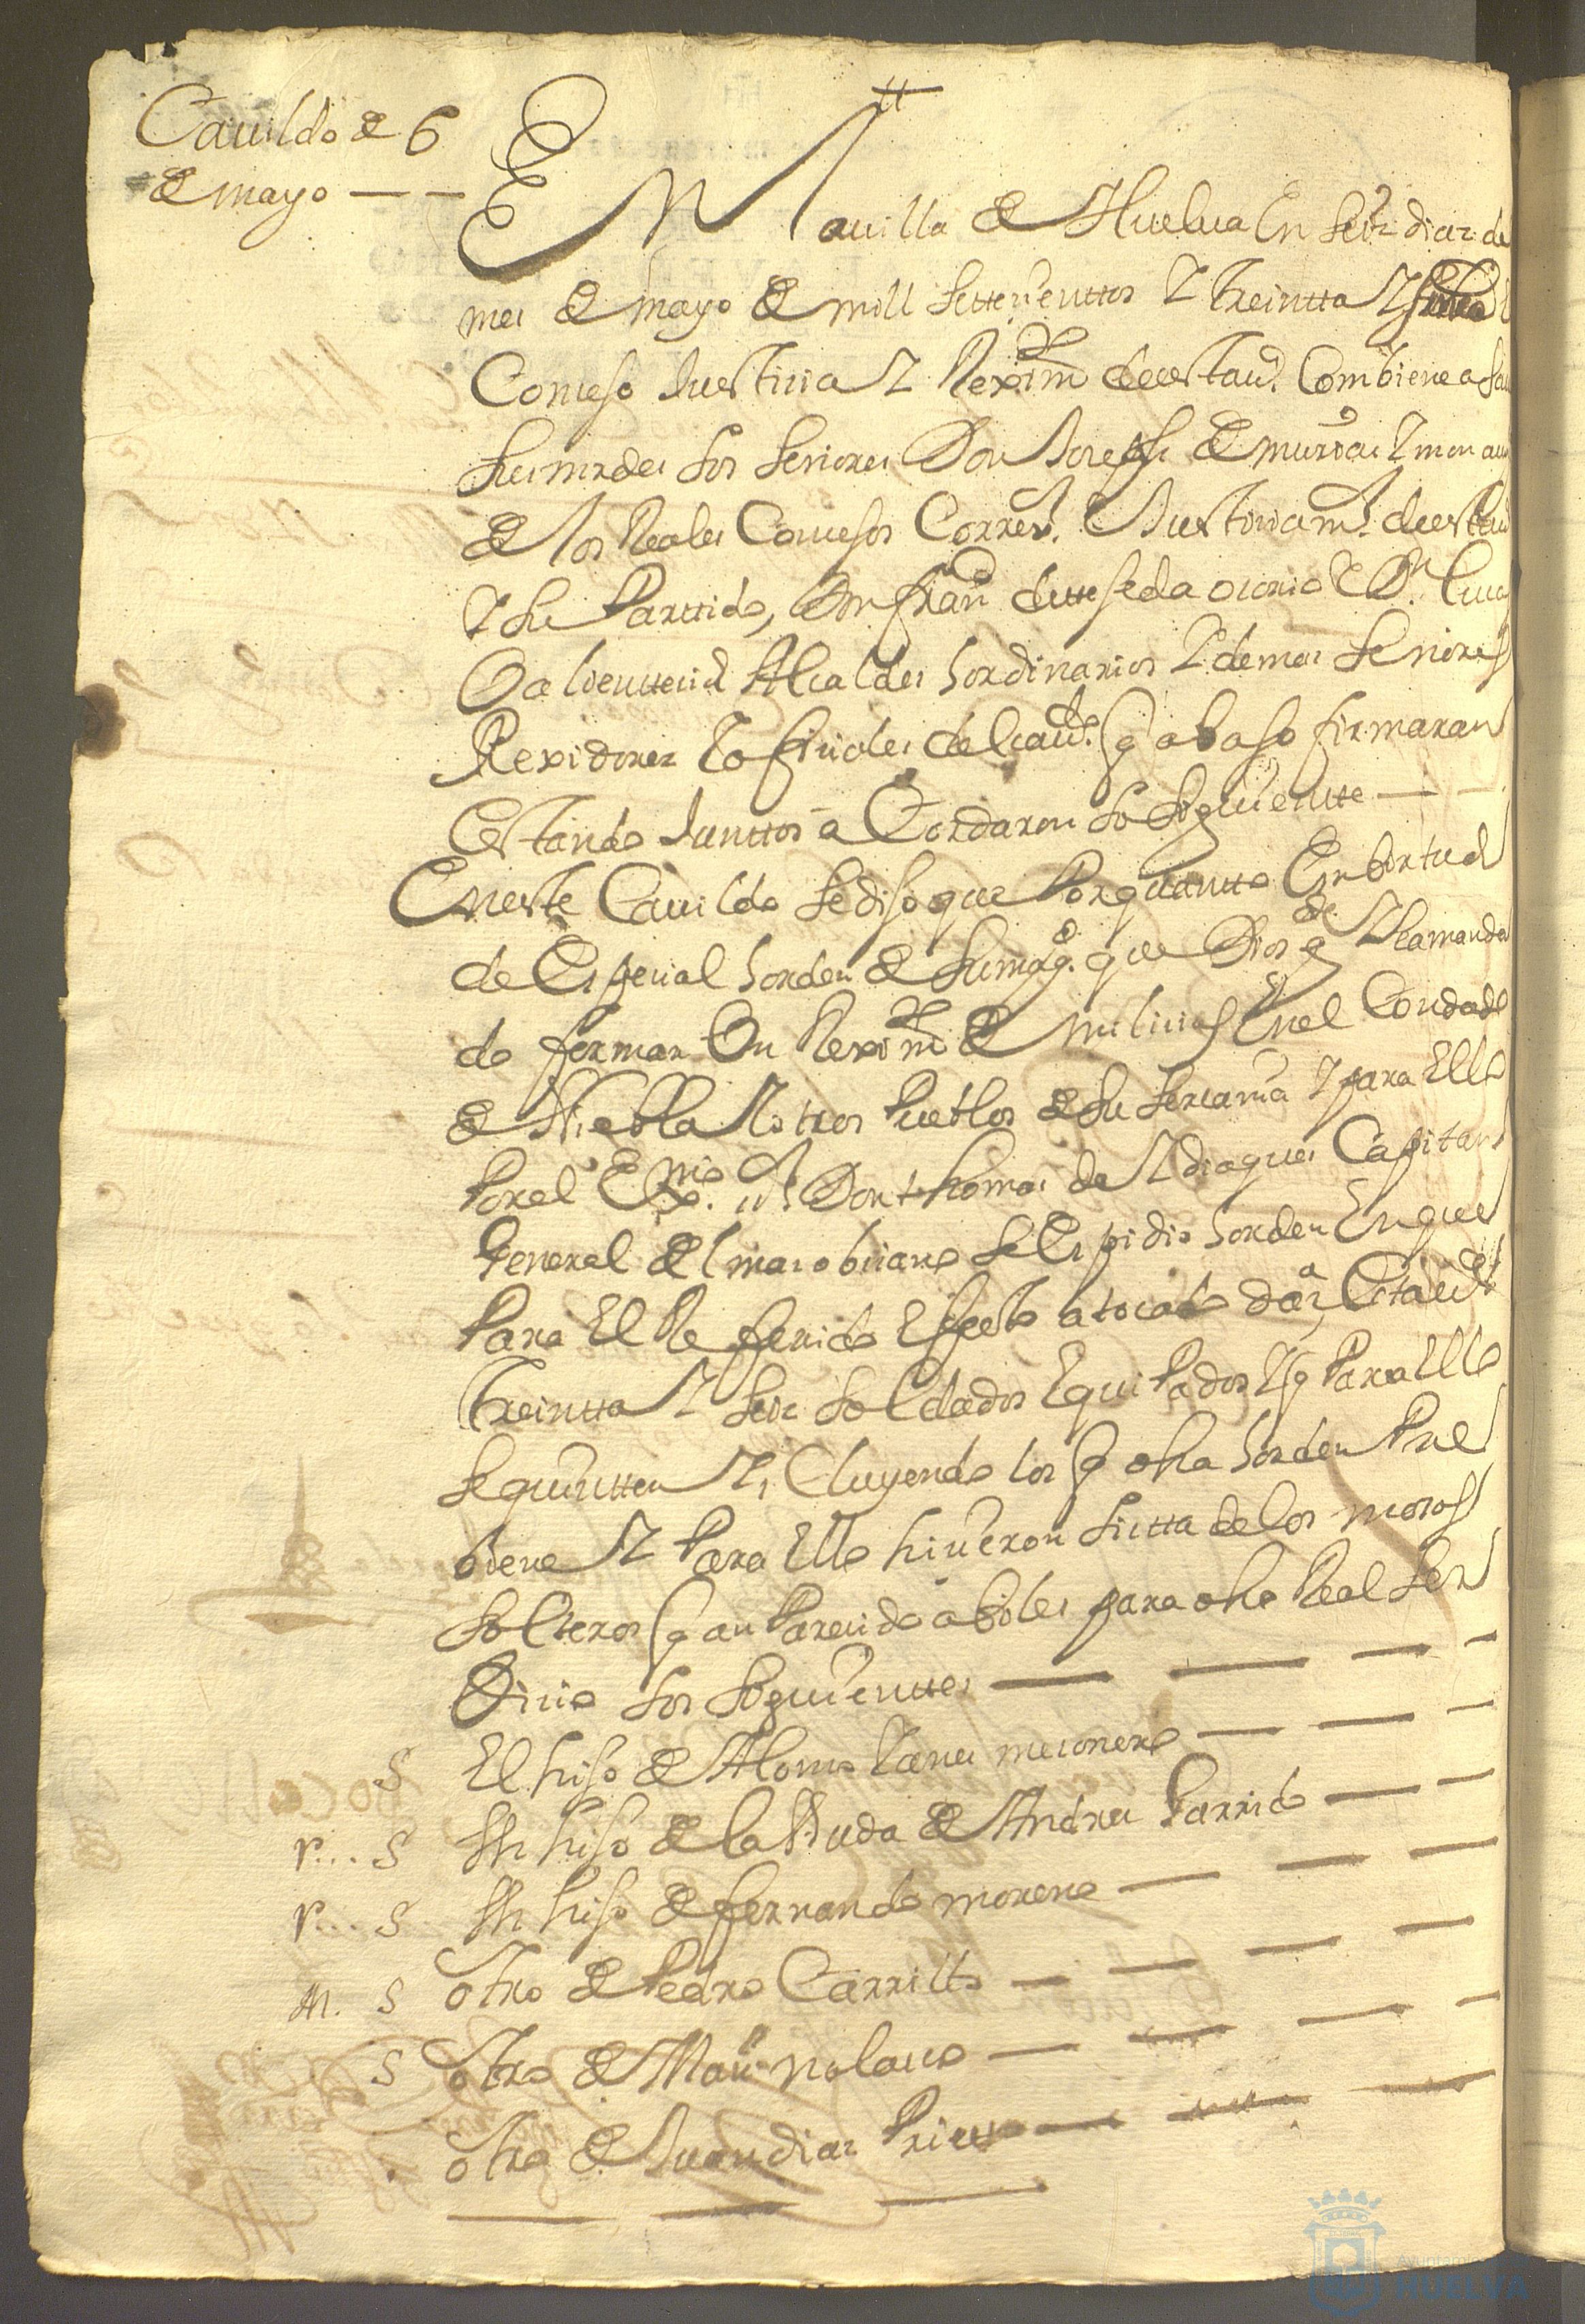 Cauildo de 6
de mayo
En la uilla de Huelua En seis dias del
mes de mayo de mill settecienttos y treintta y
Conceso Justicia y Reximto deesta Va. Combiene a saber
sus mrdes los señores Don Joseph de murcia y
de los Reales Consejos Correxr. Justicia mr. deesta
y su Parttido, Don franco de Dn
Alcaldes hordinarios y demas señores
Rexidores y ofiziales del caudo. q abaso firmaran
Estando Junttos acordaron lo siguientte
Eneste Cauildo se diso que Por quantto En birtud
de Especial horden de su magd. que Dios gde y la manda
do formar Un Reximto de miliçias Enel Condado
de Niebla y otros Pueblos de su sercania y para Ello
Porel Exmo. sr. Don thomas de Ydiaques Capitan
General del mar oceano se Espidio horden En que
Para El Refferido Efecto a tocado dar a Esta
treintta y seis soldados Equipados y q Para Ello
se quintten Yncluyendo los q dha horden Pre
biene y Para Ello hicieron lista de los mosos
solteros q an Parecido abiles para dho Real ser
bicio los siguienttes
S El hiso de Alonso Yanes mesonero
r... S Un hiso de la Viuda de Andres Garrido
r... S Un hiso de fernando moreno
m. S otro de Pedro Carrillo
S otro de Manl nolasco
otro de Juan dias Prietto
Ayuntamiento
HUELVA